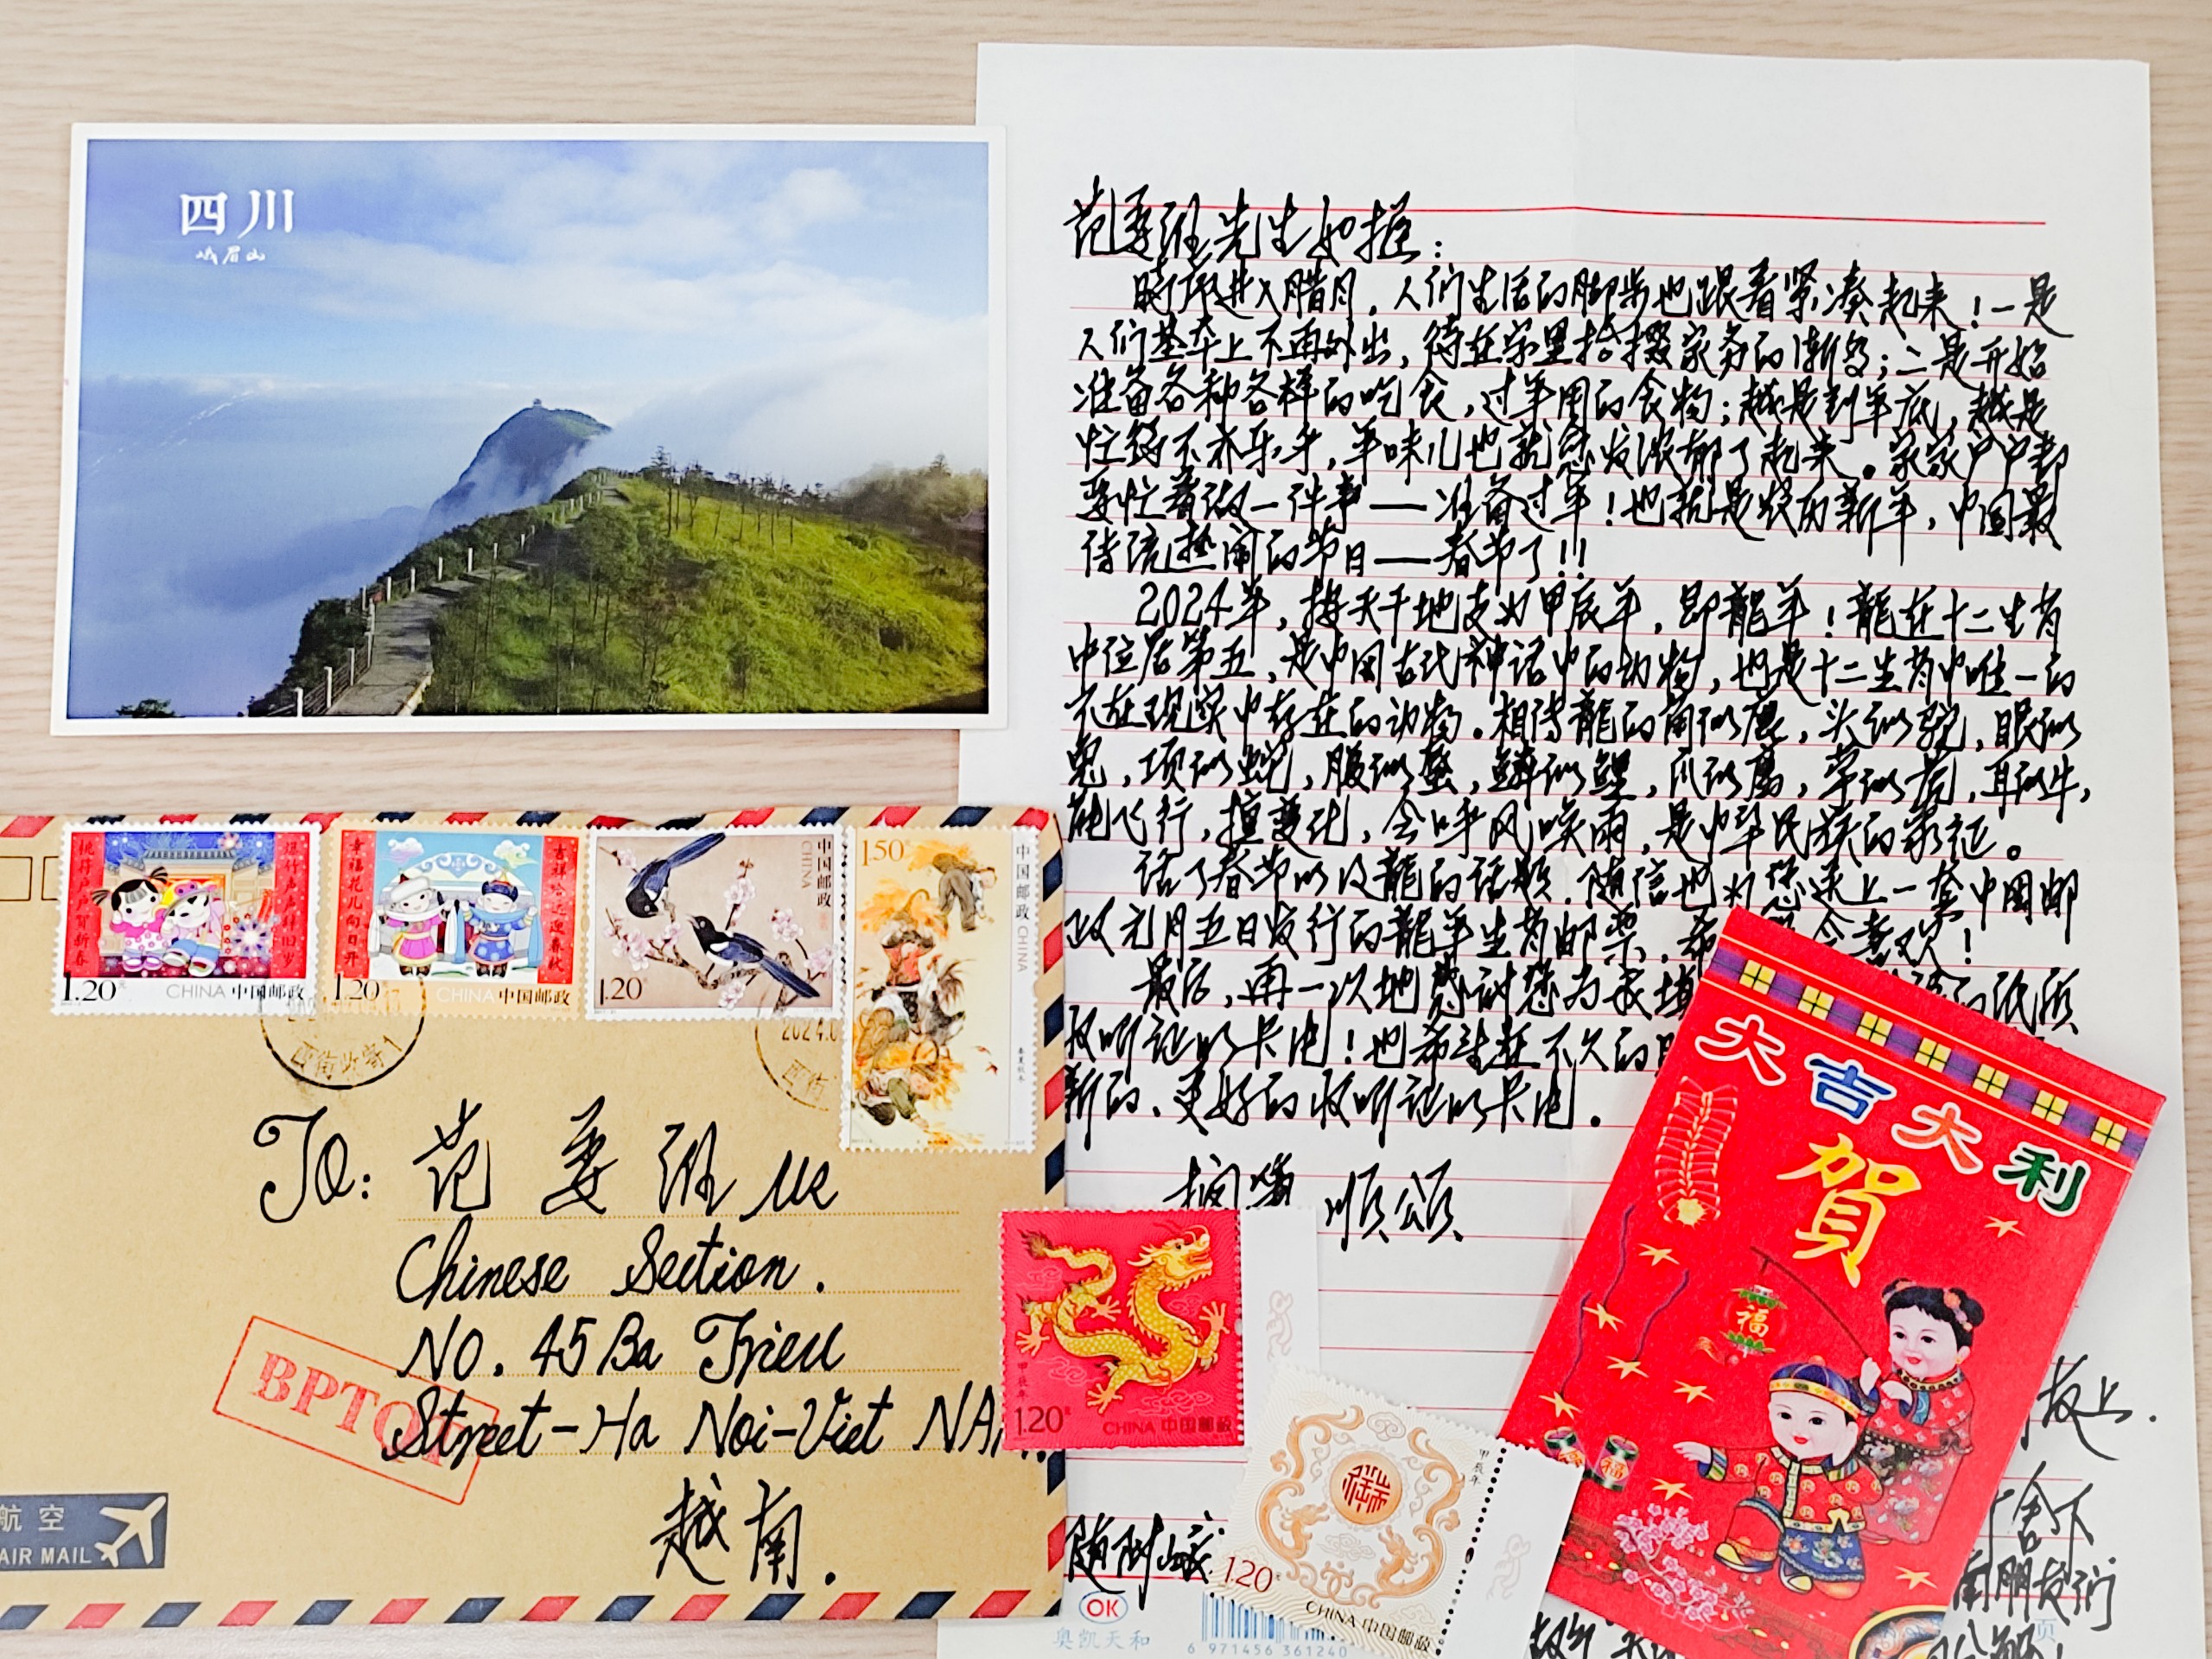 四川
峨眉山
范 先生如握：
时序进入腊月，人们生活的脚步也跟着紧凑起来！一是
人们基本上不再外出，待在家里拾掇家务的渐多；二是开始
准备各种各样的吃食，过年用的食物；越是到年底，越是
忙得不亦乐乎，年味儿也就愈发浓郁了起来。家家户户都
要忙着做一件事——准备过年！也就是农历新年，中国最
传统热闹的节日——春节了!!
2024年，按天干地支为甲辰年，即龍年！龍在十二生肖
中位居第五，是中国古代神话中的动物，也是十二生肖中唯一的
不在现实中存在的动物。相传龍的角似鹿，头似驼，眼似
鬼，项似蛇，腹似蜃，鳞似鲤，爪似鹰，掌似虎，耳似牛，
能飞行，擅变化，会呼风唤雨，是中华民族的象征。
话了春节以及龍的话题，随信也为您送上一套中国邮
政元月五日发行的龍年生肖邮票，希 会喜欢！
最后，再一次地感谢您为我填 的纸质
收听证明卡片！也希望在不久的
新的、更好的收听证明卡片。
顺颂
敬上.
舍下
南朋友们
随附
桃符户户贺新春
爆竹声声辞旧岁
1.20元
CHINA 中国邮政
幸福花儿向日开
吉祥哈达迎春献
1.20
CHINA 中国邮政
中国邮政
CHINA
1.20
1.50
中国邮政 CHINA
西街收寄1
2024.0
西街
To: 范 Mr
Chinese Section.
No. 45 Ba Trieu
Street-Ha Noi-Viet NA
越南.
BPTQT
航空
AIR MAIL
甲辰年
1.20元
CHINA 中国邮政
甲辰年
1.20元
CHINA 中国邮政
OK
奥凯天和
6 971456 361240
页
大吉大利
賀
福
福